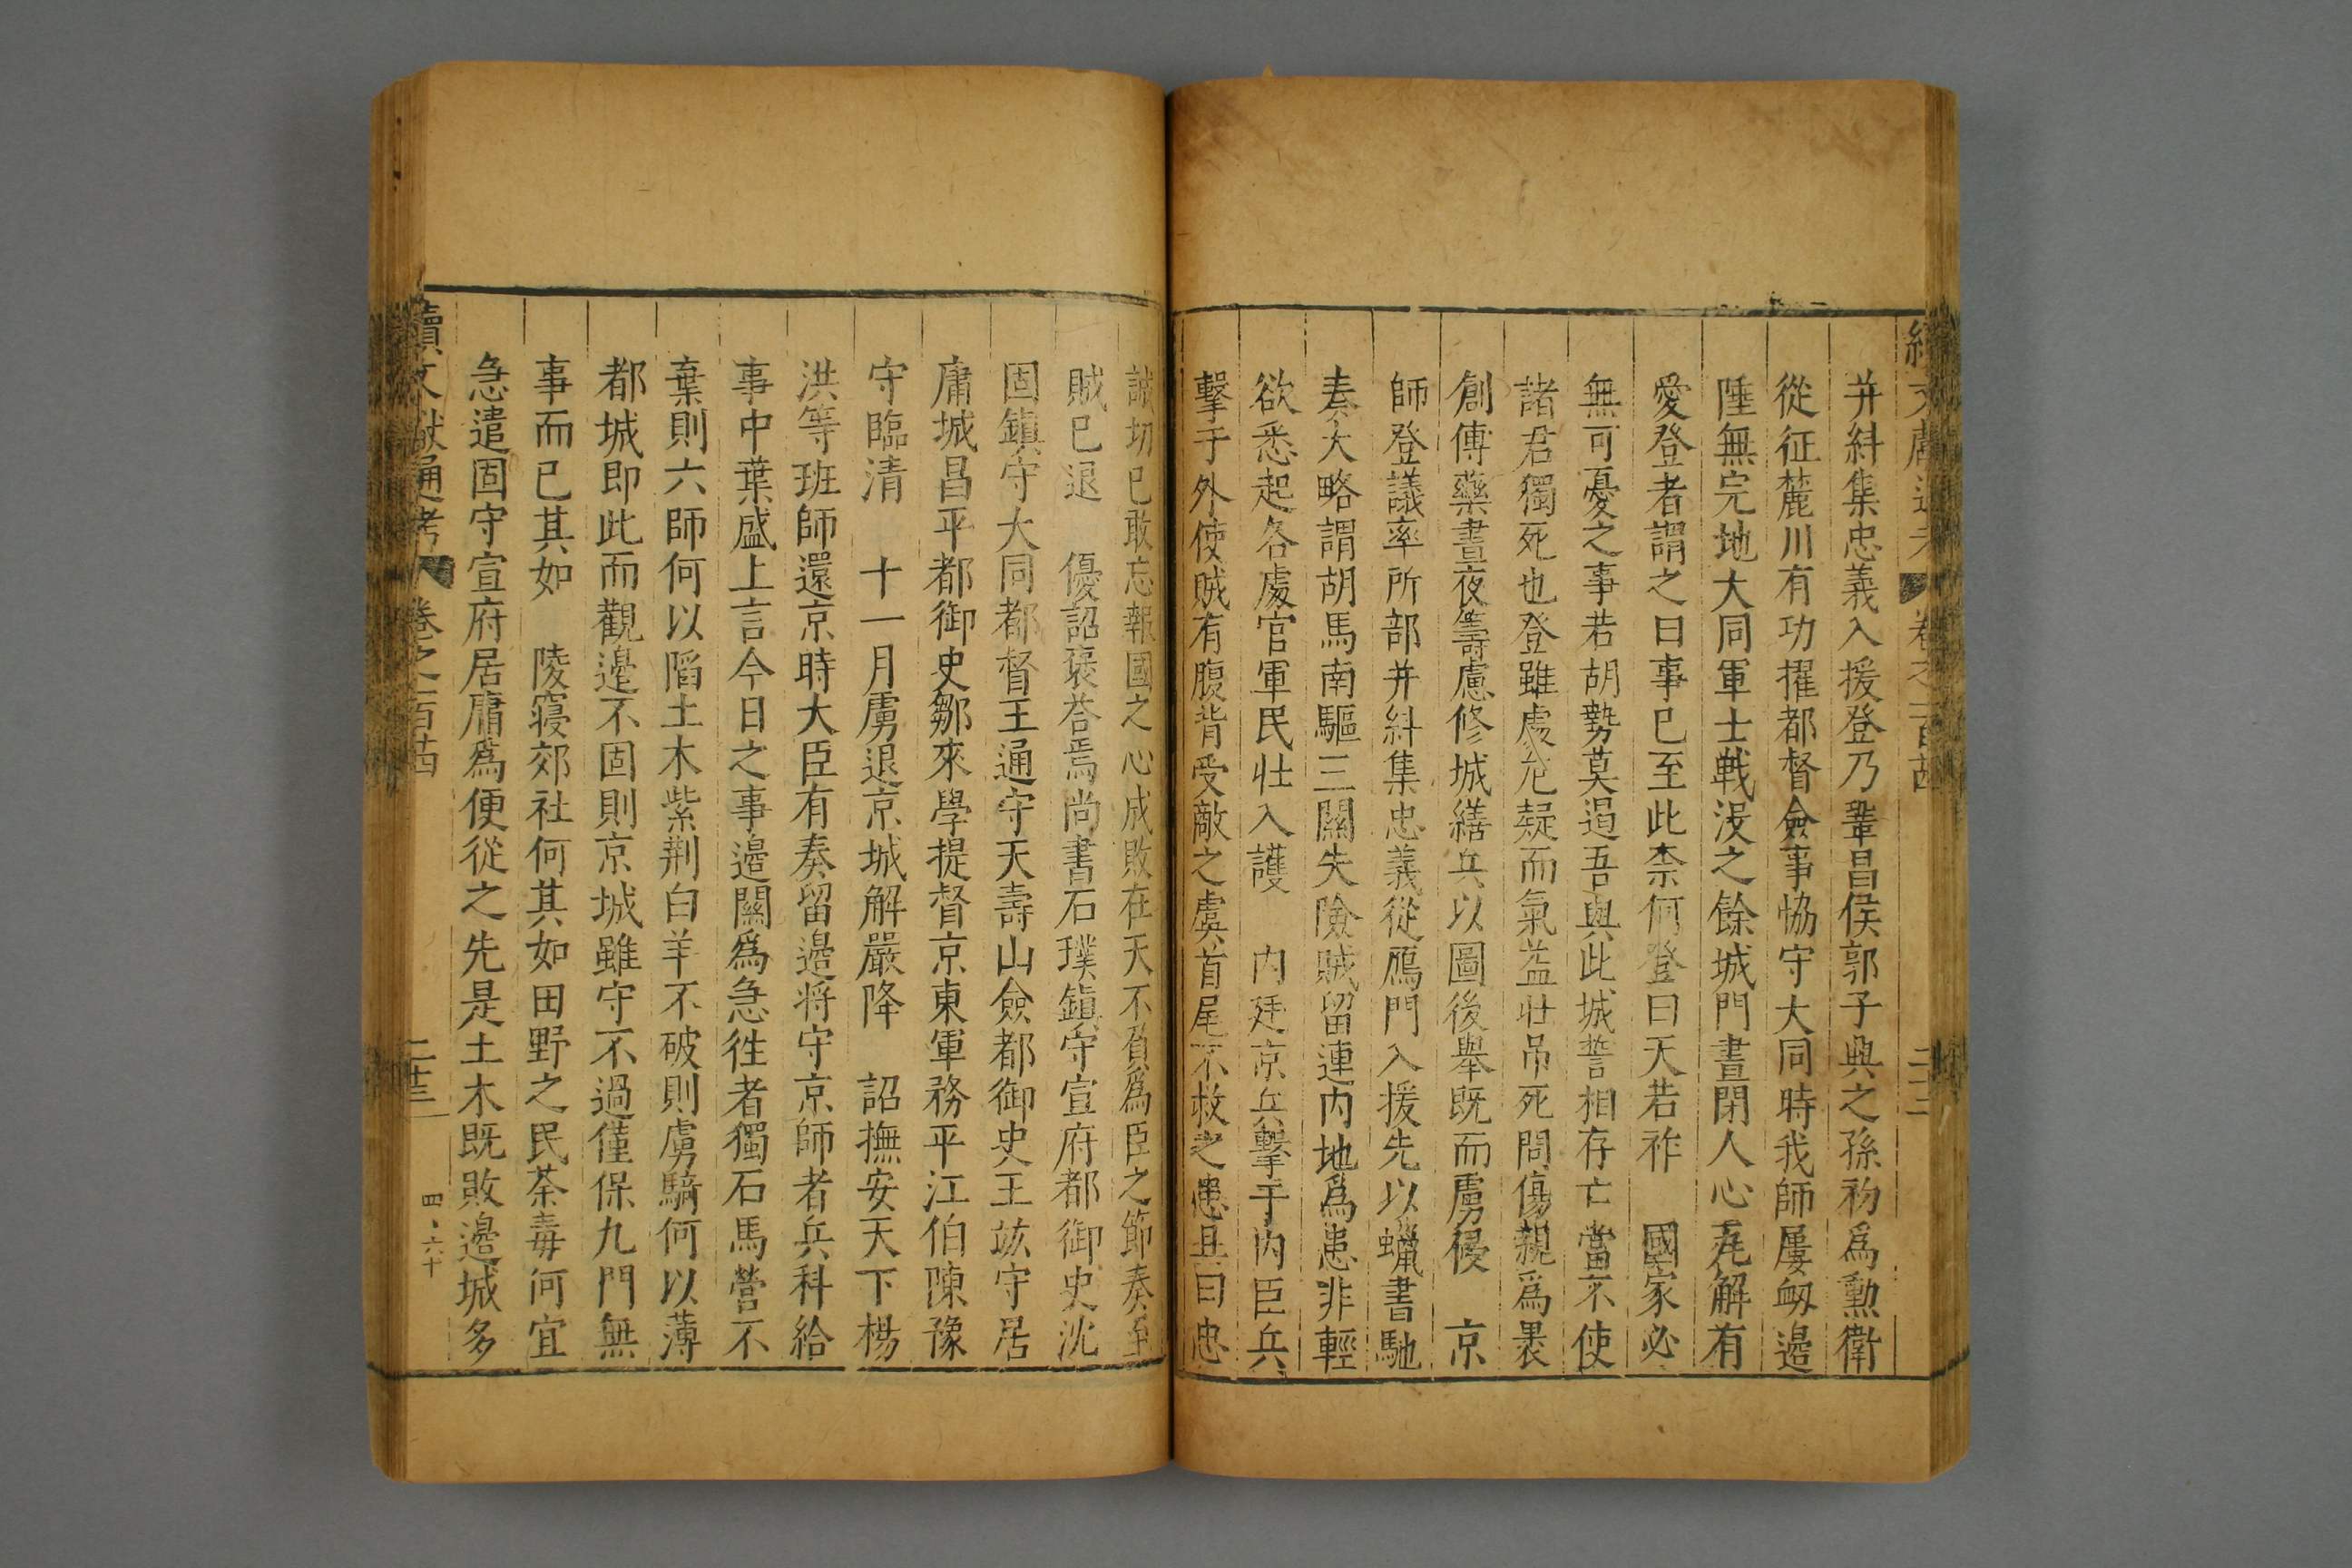 續文獻通考 卷之一百
二十二
并糾集忠義入援登乃鞏昌侯郭子興之孫初爲勲衛
從征麓川有功擢都督僉事恊守大同時我師屢衂邊
陲無完地大同軍士戰没之餘城門晝閉人心瓦解有
愛登者謂之曰事已至此柰何登曰天若祚 國家必
無可憂之事若胡勢莫遏吾與此城誓相存亡當不使
諸君獨死也登雖處危疑而氣益壯吊死問傷親爲裹
創傅藥晝夜籌慮修城繕兵以圖後舉既而虜侵 京
師登議率所部并糾集忠義從鴈門入援先以蠟書馳
奏大略謂胡馬南驅三關失險賊留連内地爲患非輕
欲悉起各處官軍民壯入護 内廷京兵擊于内臣兵
擊于外使賊有腹背受敵之虞首尾不救之患且曰忠
誠切已敢忘報國之心成敗在天不負爲臣之節奏至
賊已退 優詔褒荅焉尚書石璞鎮守宣府都御史沈
固鎮守大同都督王通守天壽山僉都御史王竑守居
庸城昌平都御史鄒來學提督京東軍務平江伯陳豫
守臨清 十一月虜退京城解嚴降 詔撫安天下楊
洪等班師還京時大臣有奏留邊将守京師者兵科給
事中葉盛上言今日之事邊關爲急徃者獨石馬營不
棄則六師何以䧟土木紫荆白羊不破則虜騎何以薄
都城即此而觀邊不固則京城雖守不過僅保九門無
事而已其如 陵寢郊社何其如田野之民荼毒何宜
急遣固守宣府居庸爲便從之先是土木既敗邊城多
續文獻通考 卷之一百
二十三
四、六十